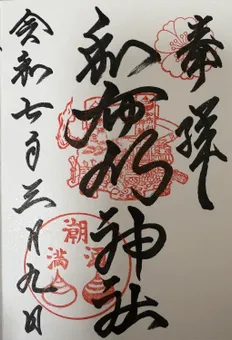 奉拝
和布刈神社
令和七年三月九日
潮
満